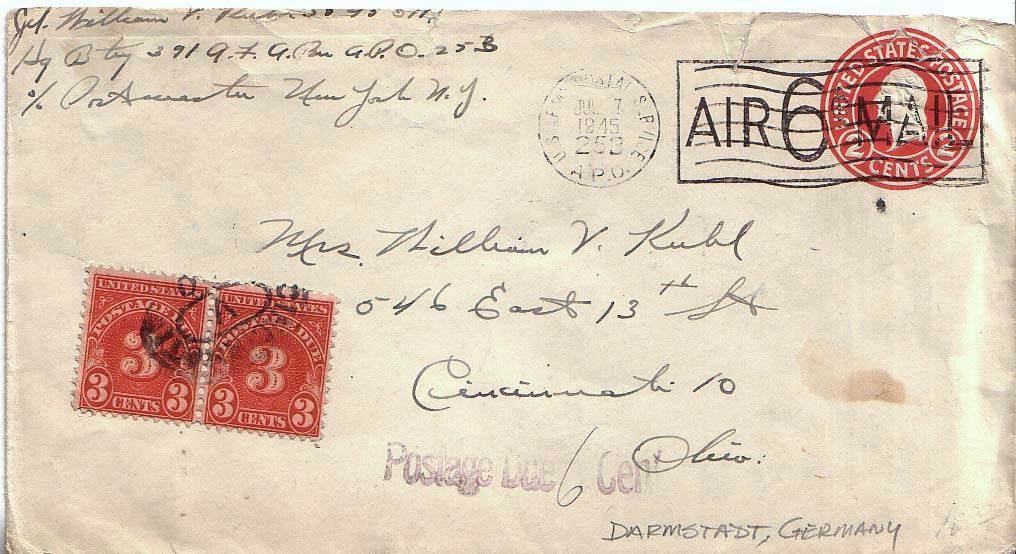 William V. Kuhl
Hq Btry 391 A.F.A.Bn A.P.O. 253
% Postmaster New York N.Y.
U.S. ARMY POSTAL SERVICE
JUL 7
1945
253
A.P.O.
AIR 6 MAIL
UNITED STATES POSTAGE
2 CENTS 2
Mrs. William V. Kuhl
546 East 13th St
Cincinnati 10
Ohio.
UNITED STATES UNITED STATES
POSTAGE DUE POSTAGE DUE
3 3
3 CENTS 3 3 CENTS 3
Postage Due 6 Cent
DARMSTADT, GERMANY